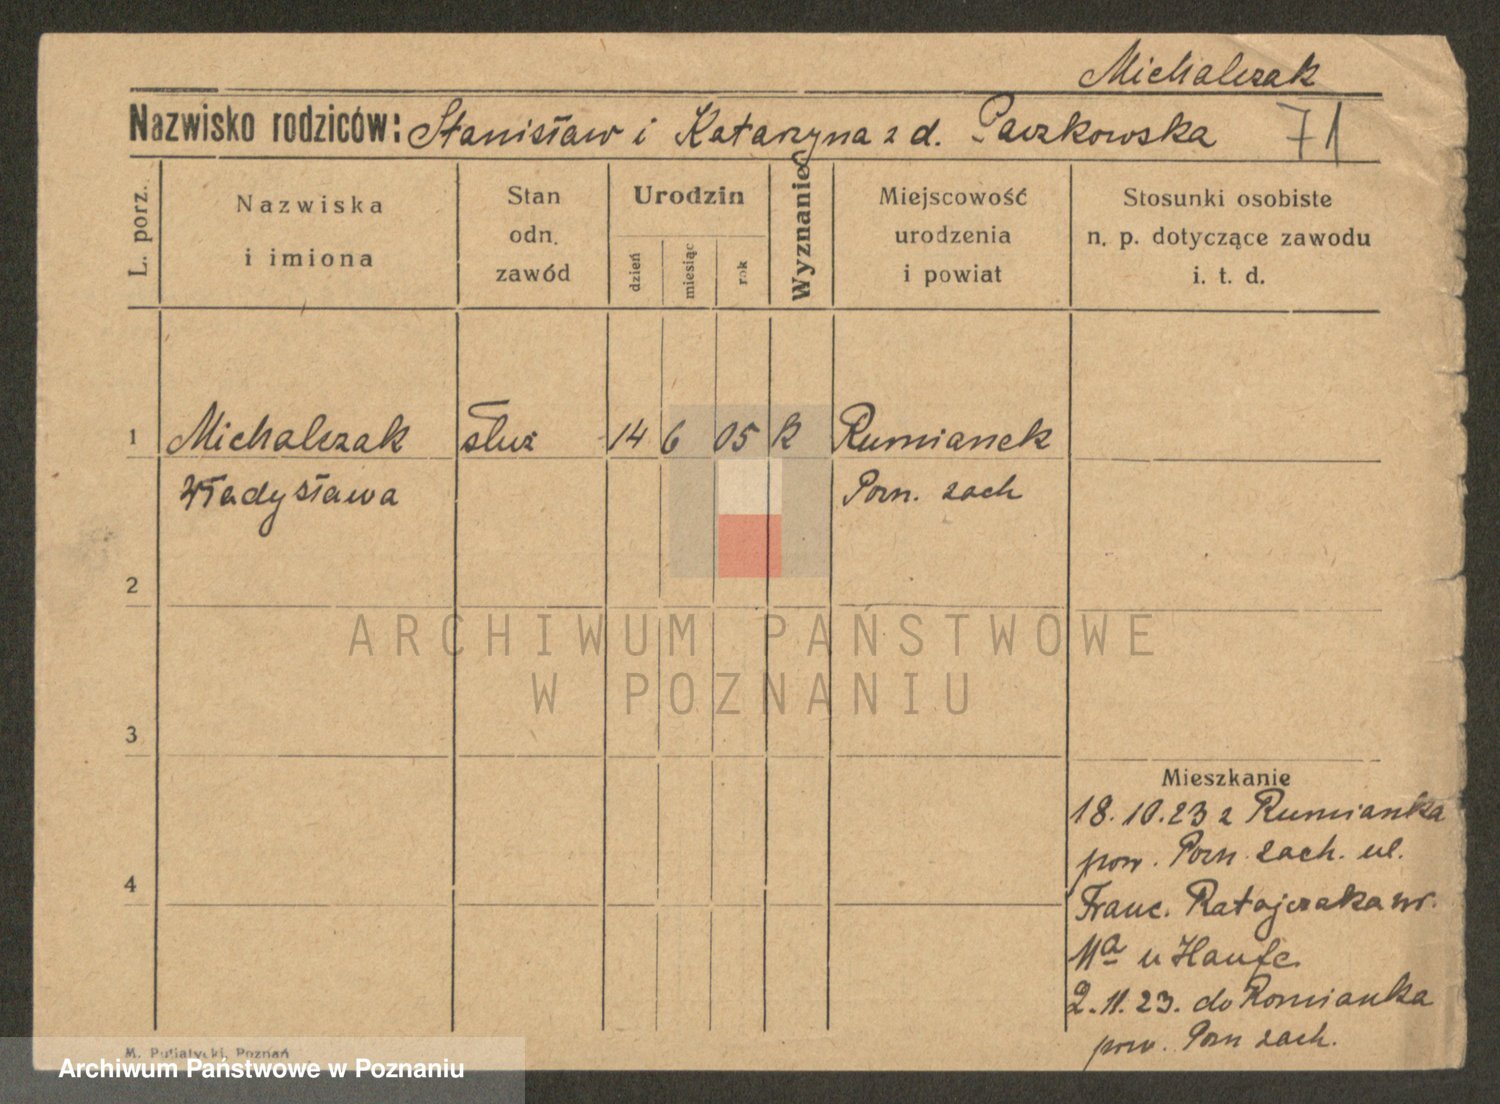 Michalczak
Nazwisko rodziców: Stanisław i Katarzyna z d. Paczkowska 71
L. porz.
Nazwiska
i imiona
Stan
odn.
zawód
Urodzin
dzień
miesiąc
rok
Wyznanie
Miejscowość
urodzenia
i powiat
Stosunki osobiste
n. p. dotyczące zawodu
i. t. d.
1 Michalczak służ 14 6 05 k Rumianek
Władysława Pozn. zach
2
ARCHIWUM PAŃSTWOWE
W POZNANIU
3
Mieszkanie
18.10.23 z Rumianka
pow. Pozn zach. ul.
4
Franc. Ratajczaka nr.
11a u Haufe
2.11.23. do Romianka
pow. Pozn zach.
M. Putiatycki, Poznań
Archiwum Państwowe w Poznaniu